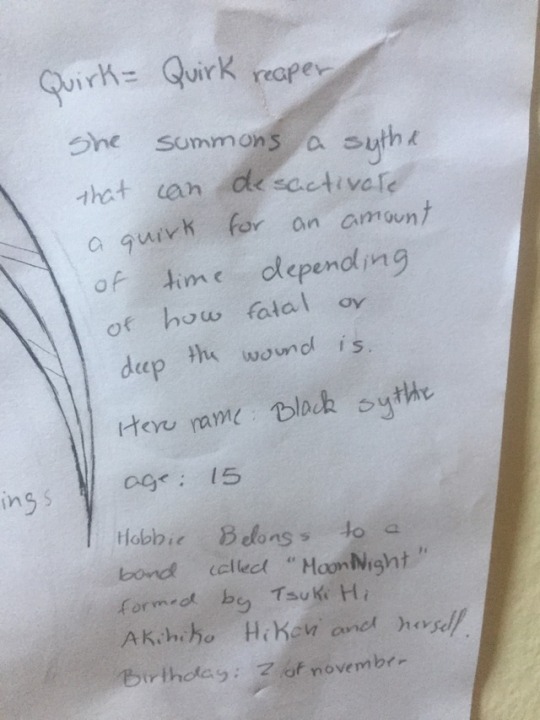 Quirk= Quirk reaper
She summons a sythe
that can desactivate
a quirk for an amount
of time depending
of how fatal or
deep the wound is.
Hero name: Black sythe
age: 15
ings
Hobbie Belongs to a
band called "MoonNight"
formed by Tsuki Hi,
Akihiko Hikari and herself.
Birthday: 2 of november